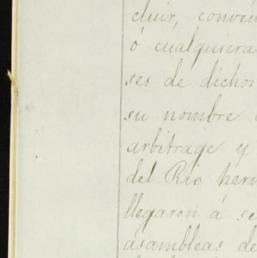 cluir, conven
ó cualquiera
ses de dicho
su nombre
arbitrage y
del Rio her
llegaron á se
asambleas de